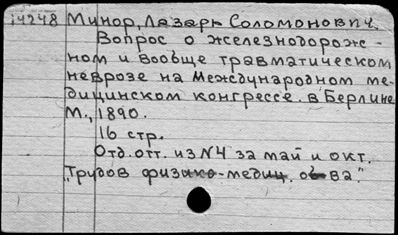 i4248 Минор, Лазарь Соломонович.
Вопрос о железнодорож-
ном и вообще травматическом
неврозе на Международном ме-
дицинском конгрессе в Берлине.
М., 1890.
16 стр.
Отд. отт. из N4 за май и окт.
"Трудов физико-медиц. о-ва."